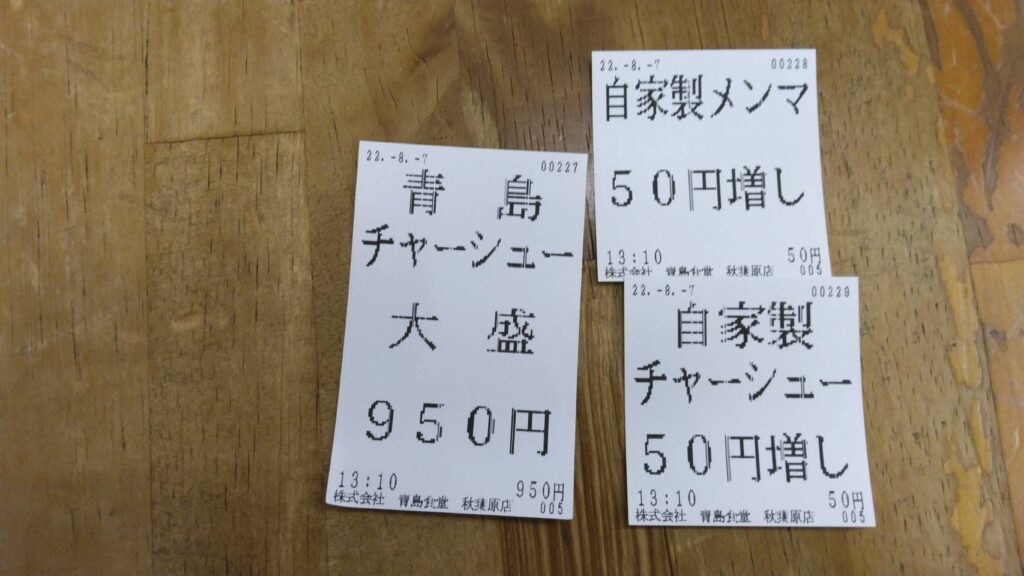 22.-8.-7 00227
青島
チャーシュー
大盛
950円
13:10 950円
株式会社 青島食堂 秋葉原店 005
22.-8.-7 00228
自家製メンマ
50円増し
13:10 50円
株式会社 青島食堂 秋葉原店 005
22.-8.-7 00229
自家製
チャーシュー
50円増し
13:10 50円
株式会社 青島食堂 秋葉原店 005